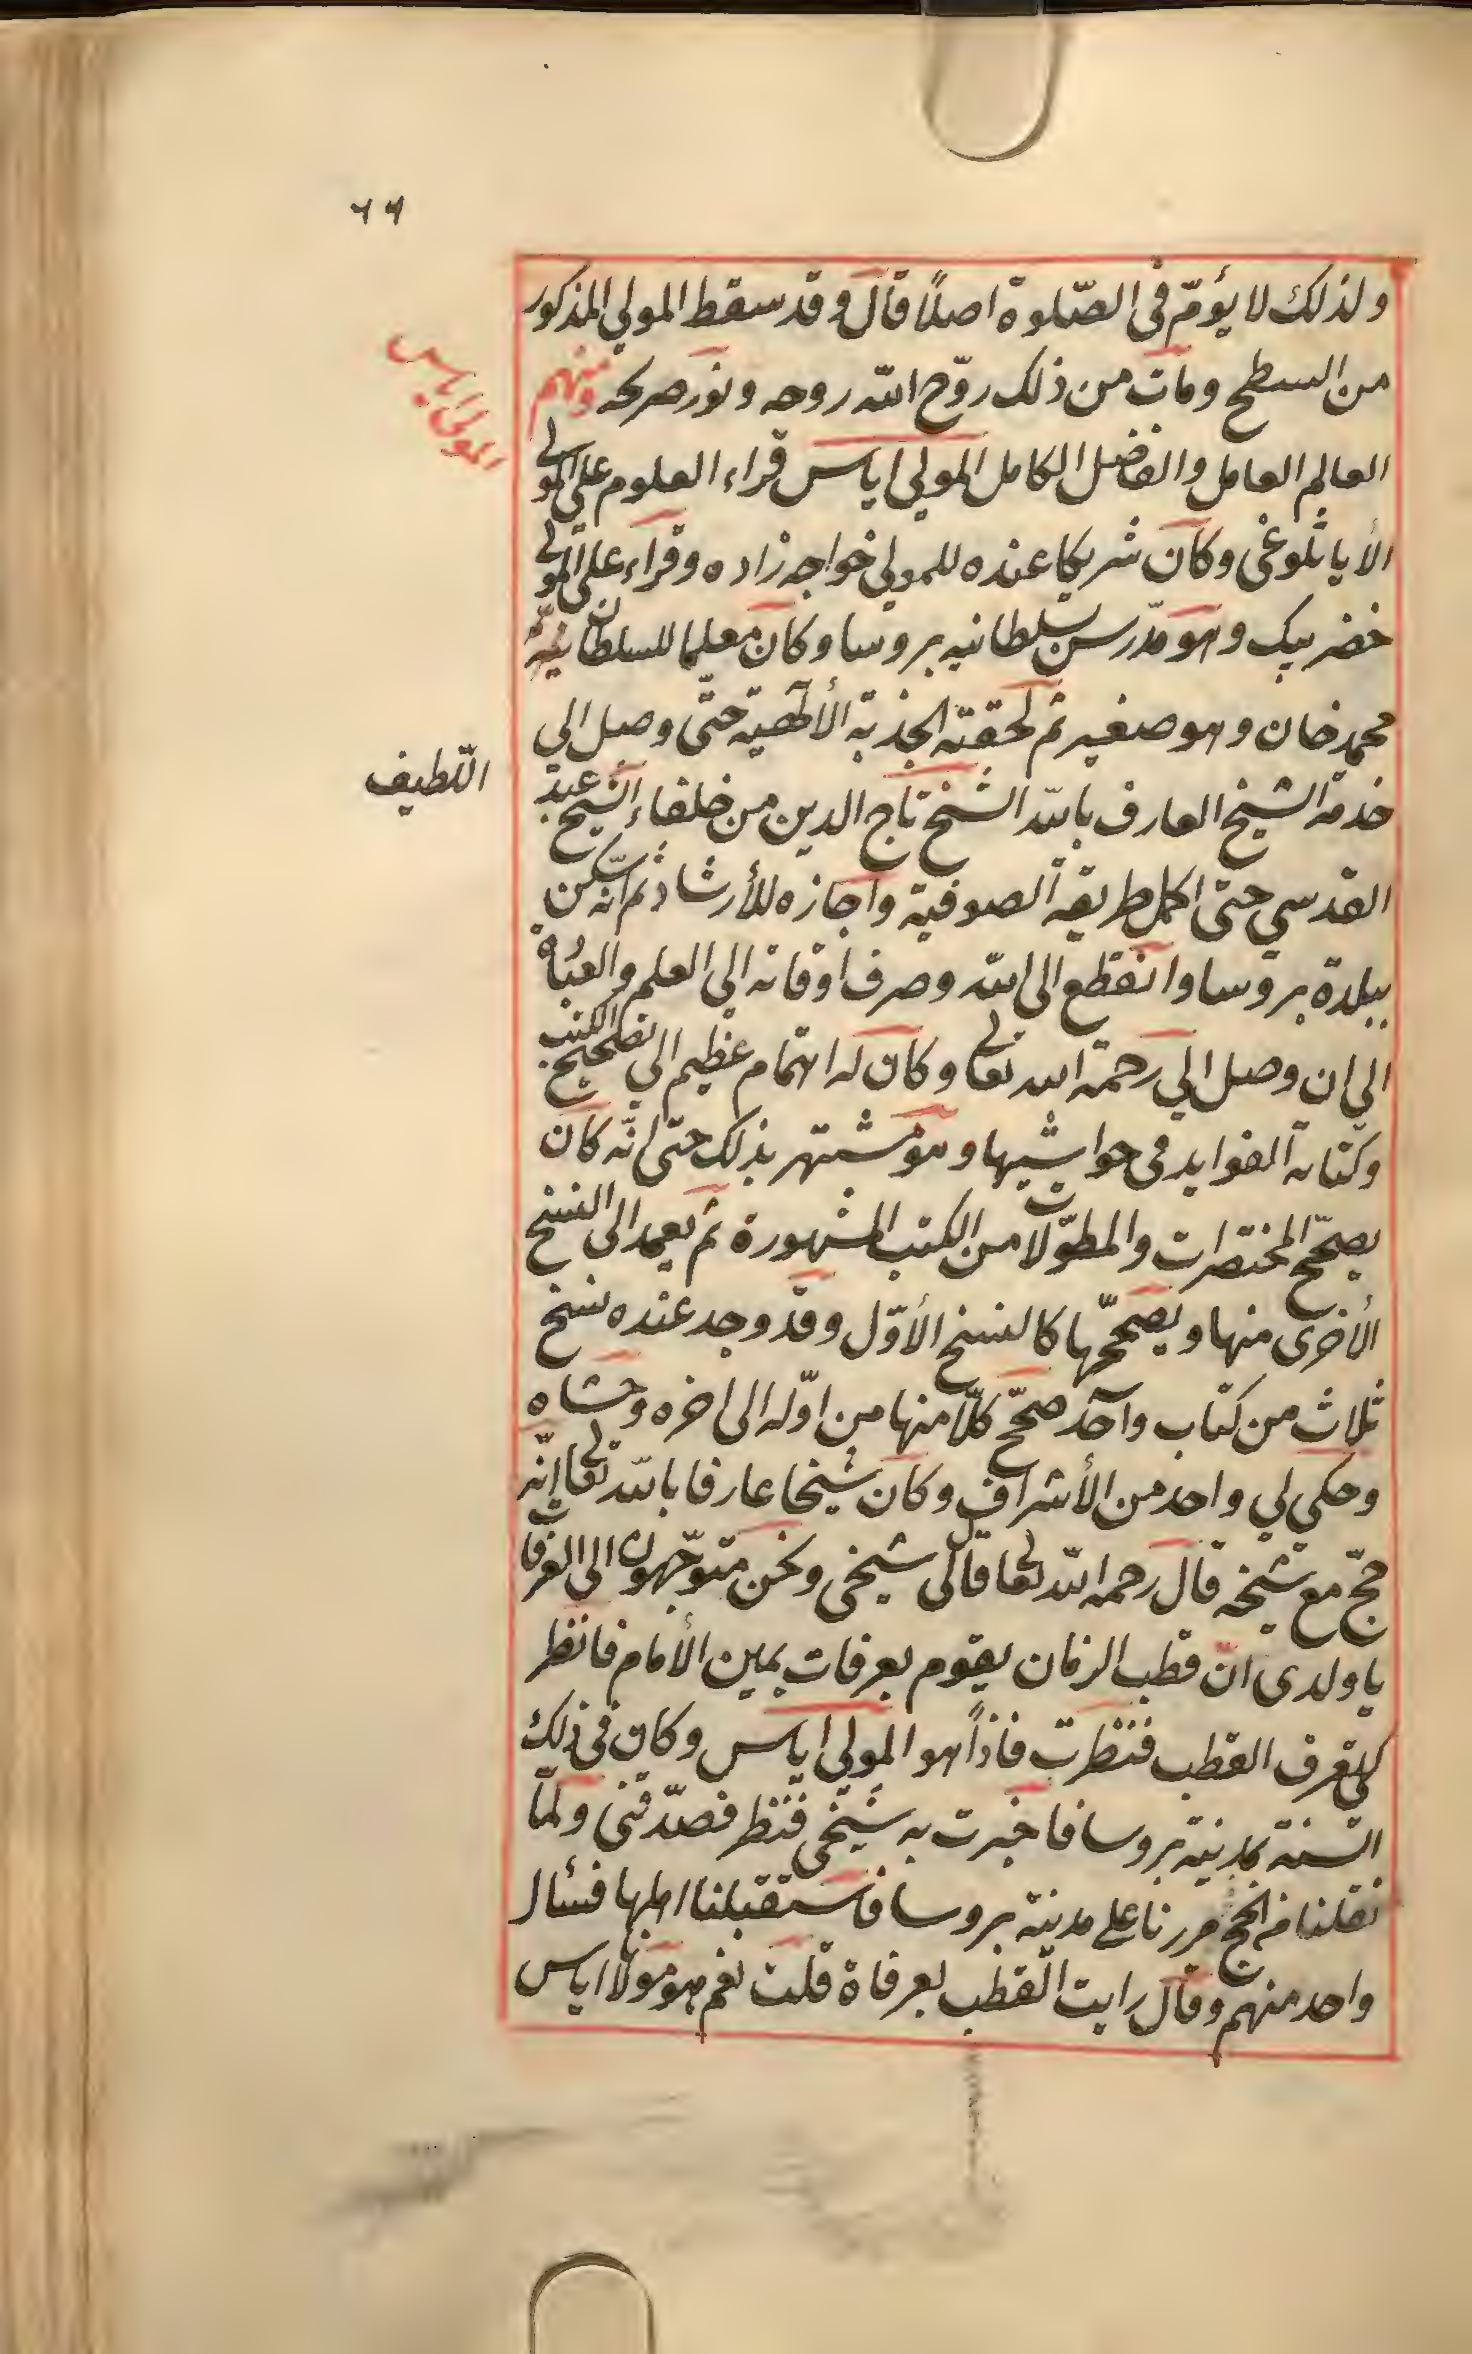 ٦٦
ولذلك لا يؤمّ فى الصّلوة اصلًا قال وقد سقط المولى المذكور
من السطح ومات من ذلك روّح الله روحه ونوّر ضريحه ومنهم
المولى اياس
العالم العامل والفاضل الكامل المولى اياس قراء العلوم على المولى
الأياثلوغى وكان شريكا عنده للمولى خواجه زاده وقراء على المولى
خضر بيك وهو مدّرس بسلطانيه بروسا وكان معلما للسلطان
محمد خان وهو صغير ثم لحقته الجذبة الألٓهية حتّى وصل الى
خدمة الشيخ العارف بالله الشيخ تاج الدين من خلفاء الشيخ عبد
اللّطيف
القدسي حتى اكمل طريقة الصوفية واجازه للأرشاد ثم انّه سكن
ببلدة بروسا وانقطع الى الله وصرف اوقاته الى العلم والعبادة
الى ان وصل الى رحمة الله تعالى وكان له اهتمام عظيم الى تصحيح الكتب
وكتابة الفوايد فى حواشيها وهو مشتهر بذلك حتى انّه كان
يصحّح المختصرات والمطوّلات من الكتب المشهورة ثم يعمد الى النسخ
الأخرى منها ويصحّحها كالنسخ الأوّل وقد وجد عنده نسخ
ثلاث من كتاب واحد صحّح كلّا منها من اوّله الى اخره وحشاه
وحكى لى واحد من الأشراف وكان شيخا عارفا بالله تعالى انّه
حجّ مع شيخه قال رحمه الله تعالى قال لى شيخى ونحن متوجّهون الى العرفات
يا ولدى انّ قطب الزمان يقوم بعرفات يمين الأمام فانظر
كى تعرف القطب فنظرت فاذاً هو المولى اياس وكان فى ذلك
السّنة بمدينة بروسا فاخبرت به شيخى فنظر فصدّقنى ولمّا
نقلنا من الحج مررنا على مدينة بروسا فاستقبلنا اهلها فسأل
واحد منهم وقال رايت القطب بعرفاة قلت نعم هو مولانا اياس